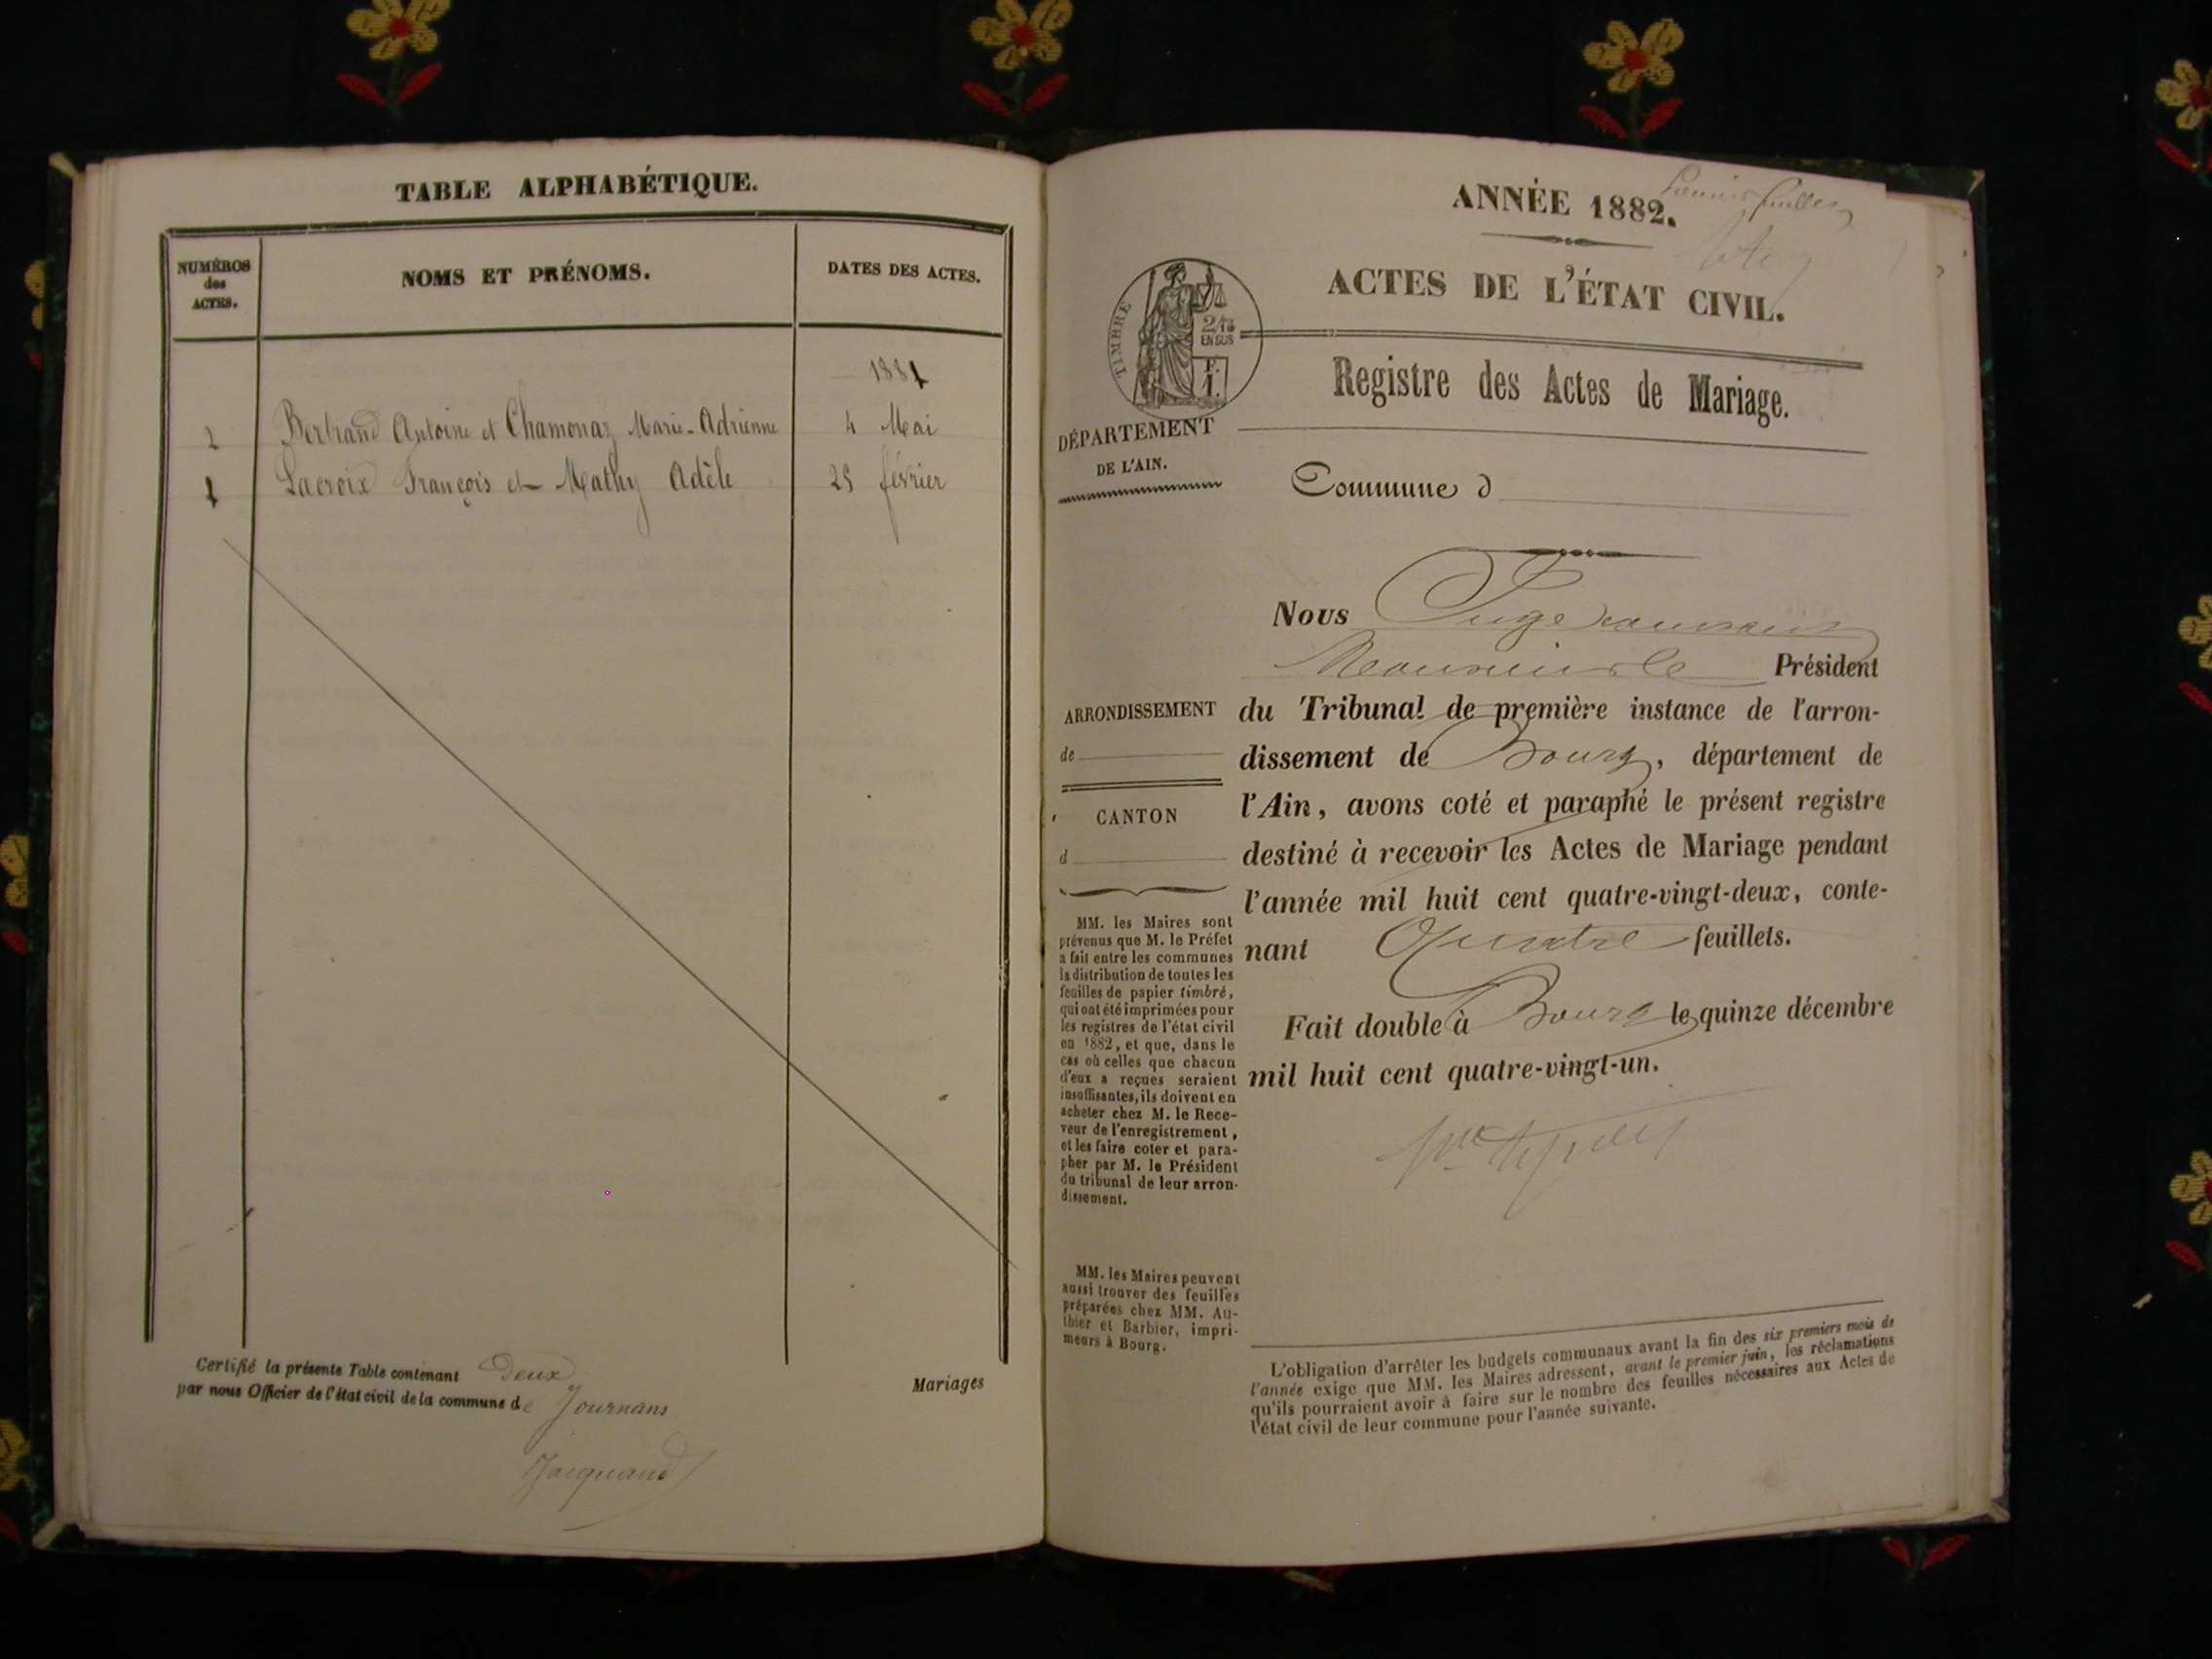 TABLE ALPHABÉTIQUE.
NUMÉROS
des
ACTES.
NOMS ET PRÉNOMS.
DATES DES ACTES.
1881
2 Bertrand Antoine et Chamonaz Marie-Adrienne 4 Mai
1 Lacroix François et Mathy Adèle 25 février
Certifié la présente Table contenant Deux
par nous Officier de l'état civil de la commune de Journans
Mariages
Jacquand
ANNÉE 1882.
ACTES DE L'ÉTAT CIVIL.
TIMBRE
2/10
EN SUS
Registre des Actes de Mariage.
DÉPARTEMENT
DE L'AIN.
Commune d
Nous Juge
Président
ARRONDISSEMENT
de
CANTON
d
du Tribunal de première instance de l'arron-
dissement de Bourg, département de
l'Ain, avons coté et paraphé le présent registre
destiné à recevoir les Actes de Mariage pendant
l'année mil huit cent quatre-vingt-deux, conte-
nant Quatre feuillets.
Fait double à Bourg le quinze décembre
mil huit cent quatre-vingt-un.
MM. les Maires sont
prévenus que M. le Préfet
a fait entre les communes
la distribution de toutes les
feuilles de papier timbré,
qui ont été imprimées pour
les registres de l'état civil
en 1882, et que, dans le
cas où celles que chacun
d'eux a reçues seraient
insuffisantes, ils doivent en
acheter chez M. le Rece-
veur de l'enregistrement,
et les faire coter et para-
pher par M. le Président
du tribunal de leur arron-
dissement.
MM. les Maires peuvent
aussi trouver des feuilles
préparées chez MM. Au-
thier et Barbier, impri-
meurs à Bourg.
L'obligation d'arrêter les budgets communaux avant la fin des six premiers mois de
l'année exige que MM. les Maires adressent, avant le premier juin, les réclamations
qu'ils pourraient avoir à faire sur le nombre des feuilles nécessaires aux Actes de
l'état civil de leur commune pour l'année suivante.